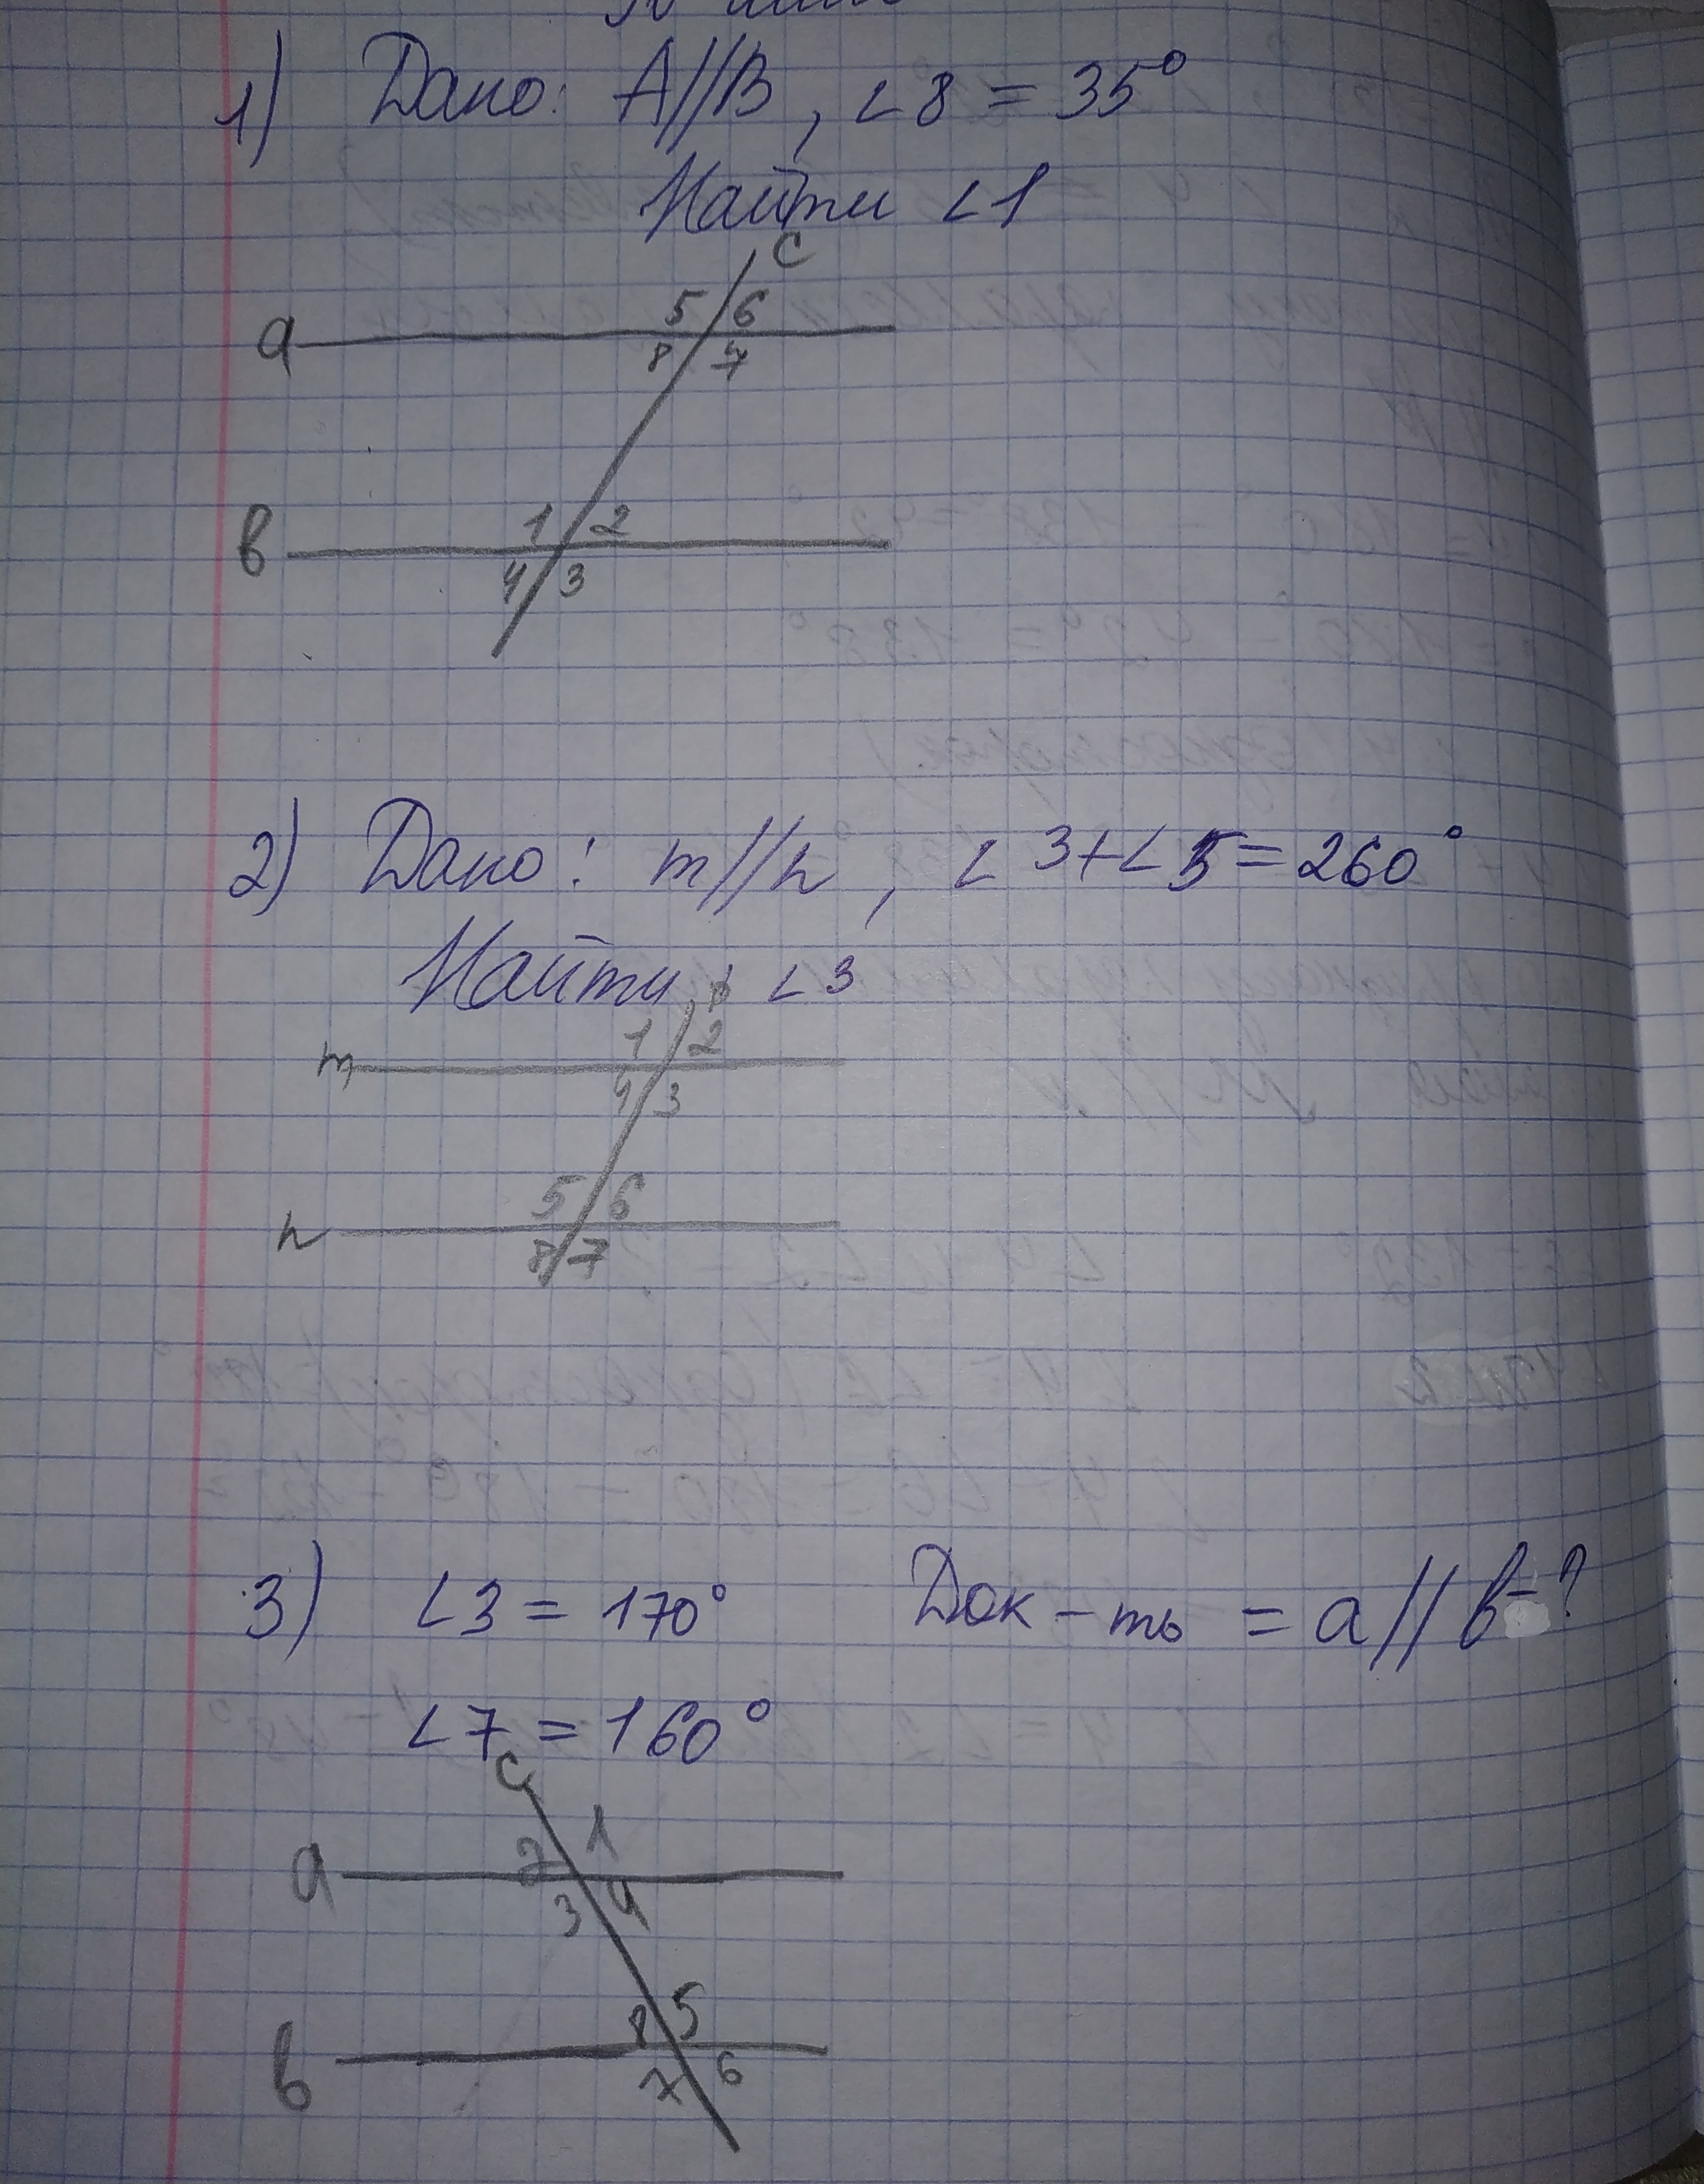 1) Дано: A//B, ∠8 = 35°
Найти ∠1
c
5 6
a
8 7
1 2
в
4 3
2) Дано: m//n, ∠3+∠5=260°
Найти ∠3
1 2
m
4 3
5 6
n
8 7
3) ∠3 = 170° Док-ть = a//в-?
∠7 = 160°
c
2 1
a
3 4
8 5
в
7 6